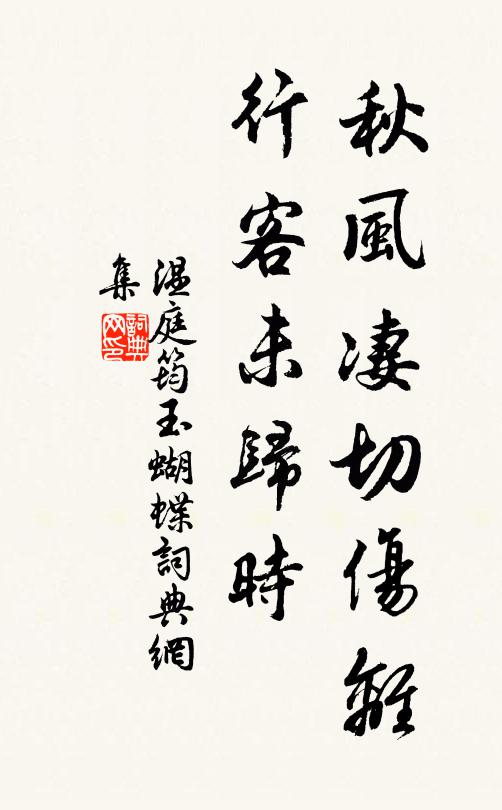 秋風凄切傷離
行客未歸時
溫庭筠玉蝴蝶詞典網
集
詞典
网印